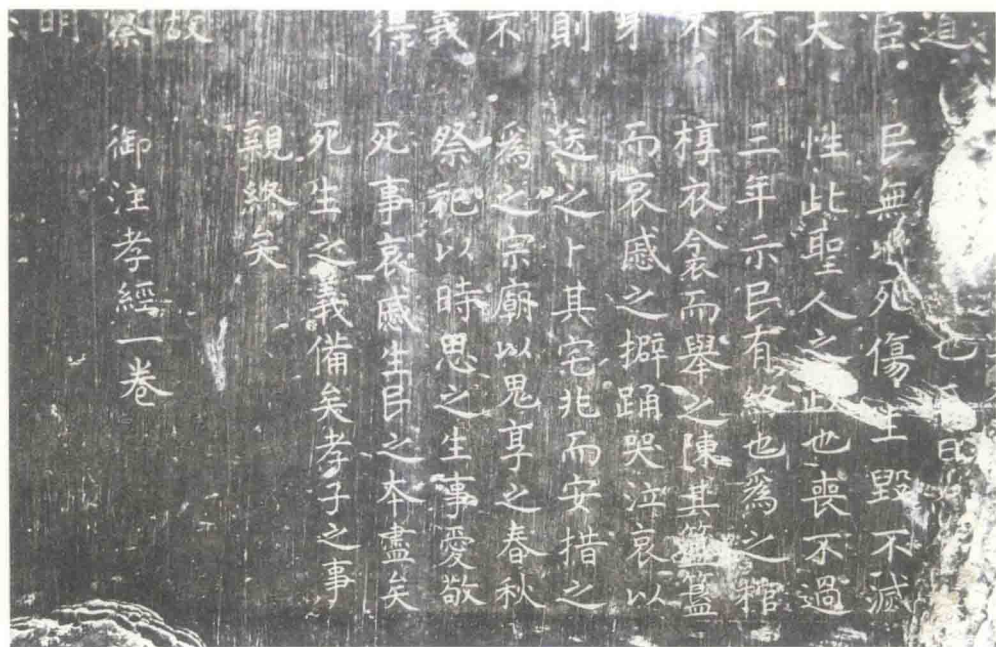 道
臣
大
不
不
身
則
不
義
得
故
祭
明
也日
民無以死傷生毀不滅
性此聖人之正也喪不過
三年示民有終也爲之棺
椁衣衾而舉之陳其簠簋
而哀慼之擗踊哭泣哀以
送之卜其宅兆而安措之
爲之宗廟以鬼享之春秋
祭祀以時思之生事愛敬
死事哀慼生民之本盡矣
死生之義備矣孝子之事
親終矣
御注孝經一卷